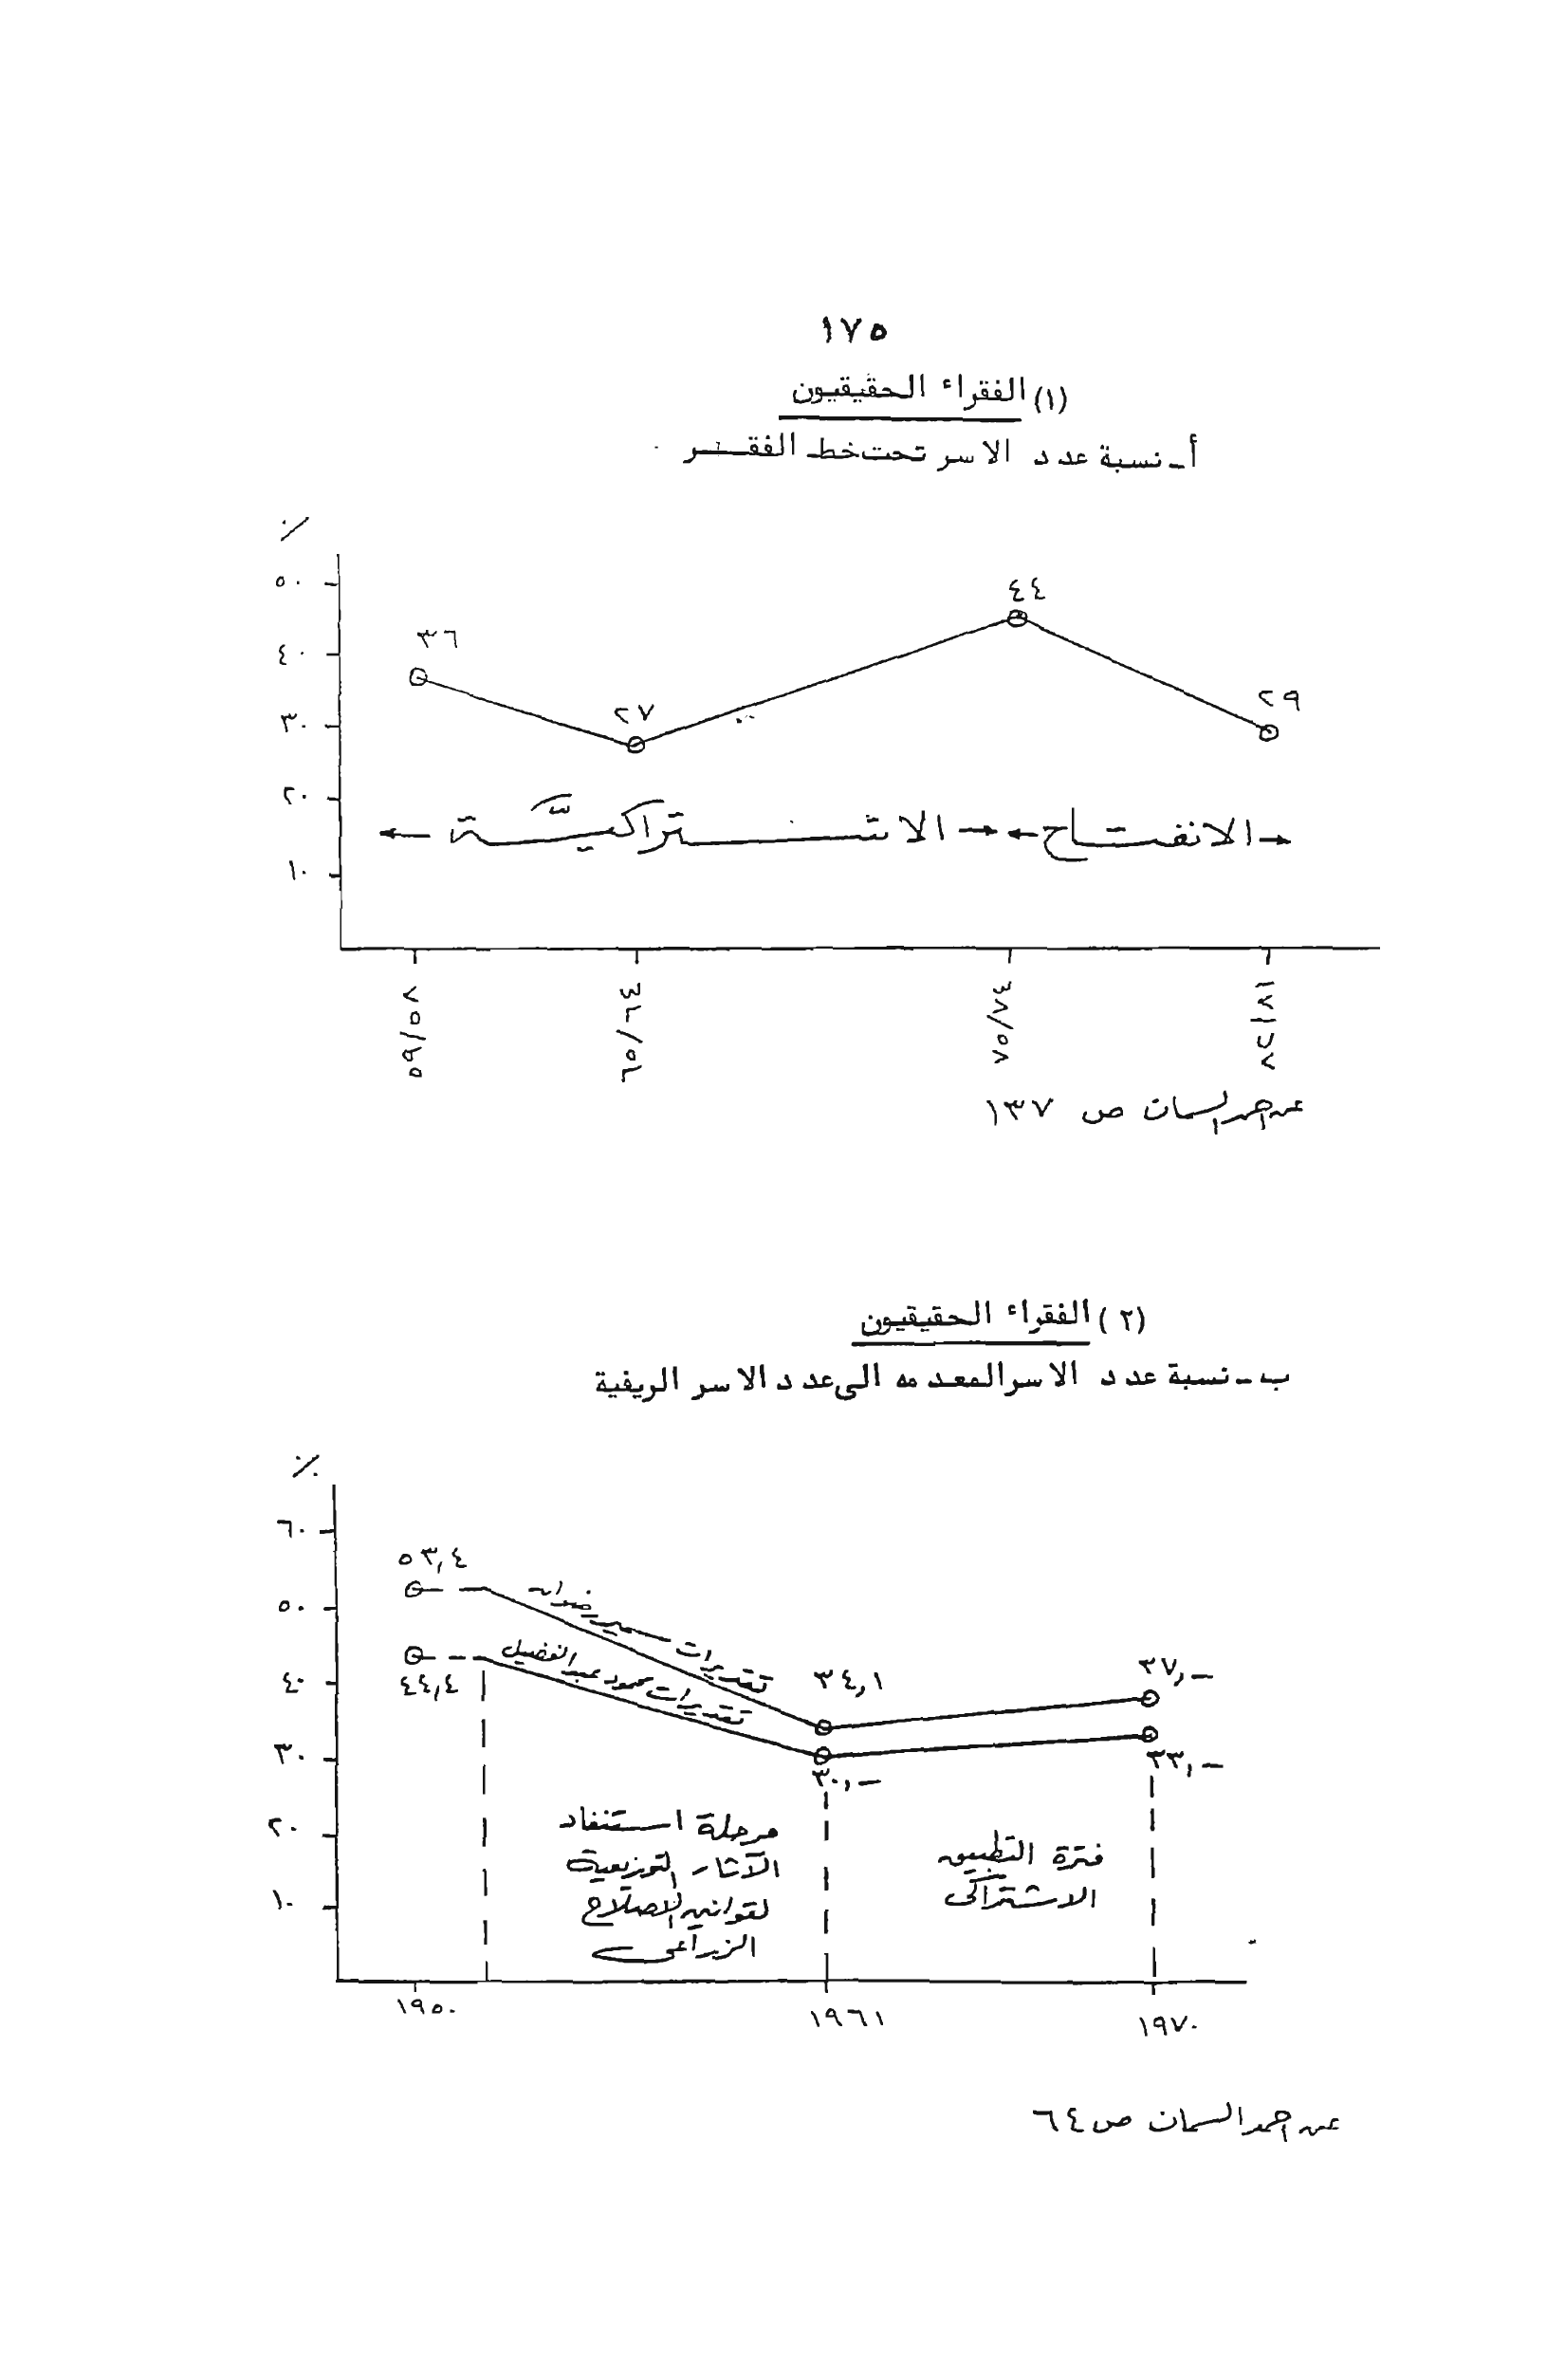 ١٧٥
(١) الفقراء الحقيقيون
أ ـ نسبة عدد الاسر تحت خط الفقر
٪
٥٠
٤٠
٣٠
٢٠
١٠
٣٦
٢٧
٤٤
٢٩
الاشتراكيّة
الانفتاح
٥٩/٥٨
٦٥/٦٤
٧٥/٧٤
٨٢/٨١
عن احمد السمان ص ١٣٧
(٢) الفقراء الحقيقيون
ب ـ نسبة عدد الاسر المعدمه الى عدد الاسر الريفية
٪
٦٠
٥٠
٤٠
٣٠
٢٠
١٠
٥٣,٤
٤٤,٤
تقديرات سمير رضوان
تقديرات محمود عبد الفضيل
٣٤,١
٣٠,ـ
٣٧,ـ
٣٣,ـ
مرحلة استنفاد
الآثار التوزيعية
لقوانين الاصلاح
الزراعى
فترة التطبيق
الاشتراكى
١٩٥٠
١٩٦١
١٩٧٠
عن احمد السمان ص ٦٤